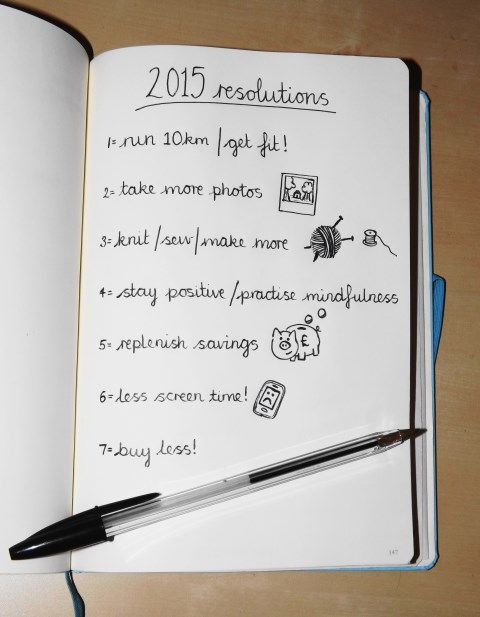 2015 resolutions
1= run 10km / get fit!
2= take more photos
3= knit / sew / make more
4= stay positive / practise mindfulness
5= replenish savings
£
6= less screen time!
7= buy less!
147